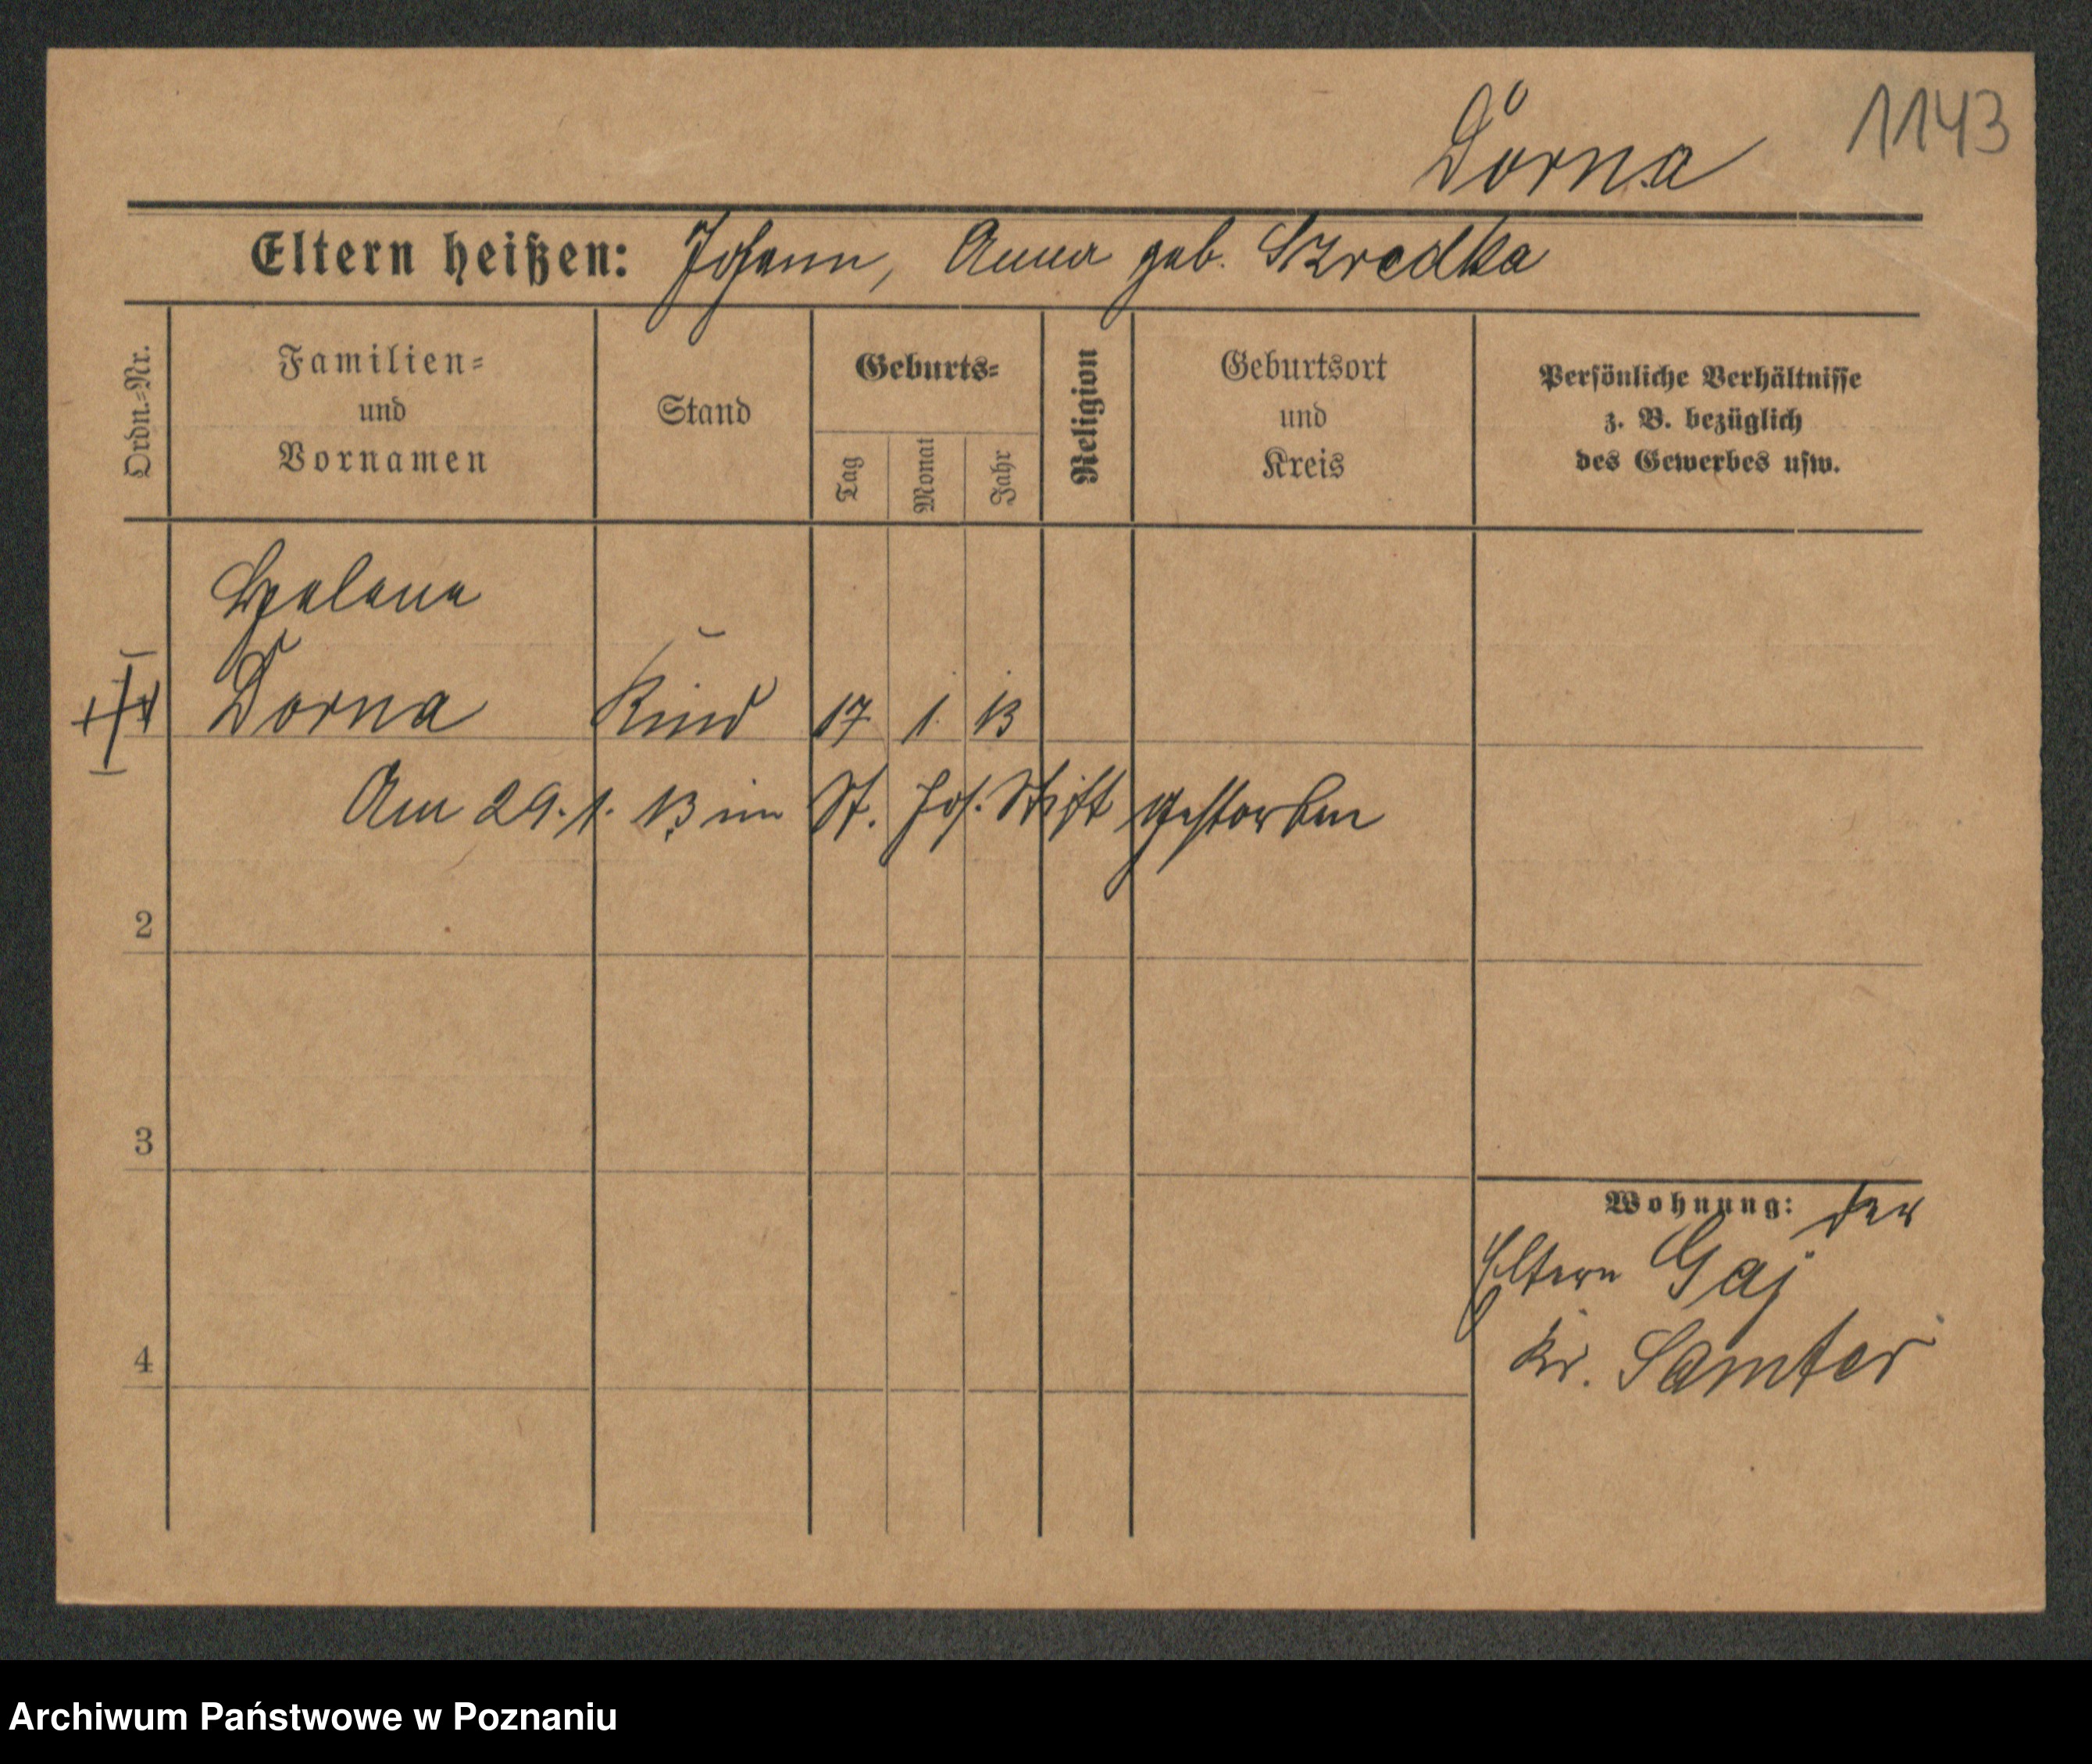 1143
Dorna
Eltern heißen: Johann, Anna geb. Szredka
Ordn.=Nr.
Familien=
und
Vornamen
Stand
Geburts=
Tag
Monat
Jahr
Religion
Geburtsort
und
Kreis
Persönliche Verhältnisse
z. B. bezüglich
des Gewerbes usw.
Helene
Dorna Kind 17. 1. 13
Am 29. 1. 13 im St. Jos. Stift gestorben
2
3
Wohnung: der
Eltern Gaj
Kr. Samter
4
Archiwum Państwowe w Poznaniu